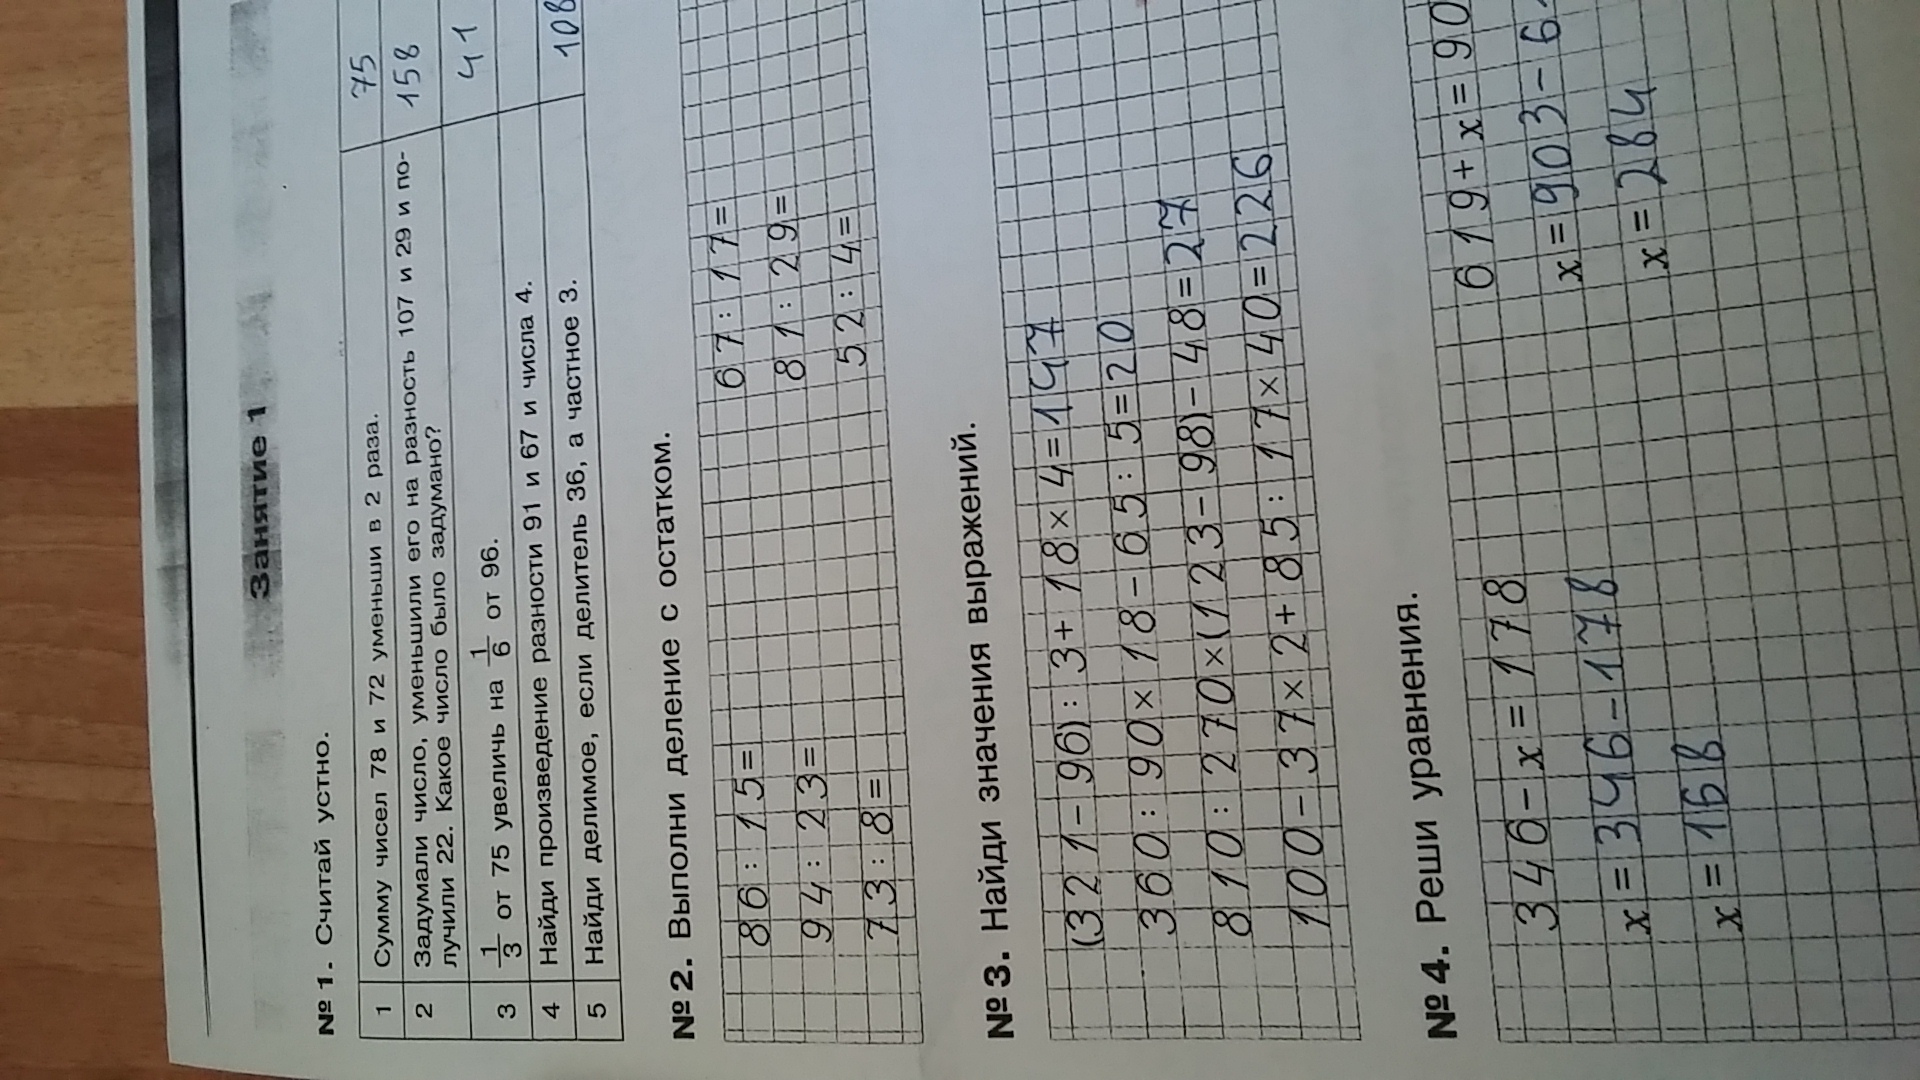 Занятие 1
№ 1. Считай устно.
1 Сумму чисел 78 и 72 уменьши в 2 раза. 75
2 Задумали число, уменьшили его на разность 107 и 29 и по- 158
лучили 22. Какое число было задумано?
3 1/3 от 75 увеличь на 1/6 от 96. 41
4 Найди произведение разности 91 и 67 и числа 4.
5 Найди делимое, если делитель 36, а частное 3. 108
№ 2. Выполни деление с остатком.
86 : 15 = 67 : 17 =
94 : 23 = 81 : 29 =
73 : 8 = 52 : 4 =
№ 3. Найди значения выражений.
(321 - 96) : 3 + 18 × 4 = 147
360 : 90 × 18 - 65 : 5 = 20
810 : 270 × (123 - 98) - 48 = 27
100 - 37 × 2 + 85 : 17 × 40 = 226
№ 4. Реши уравнения.
346 - x = 178 619 + x = 90
x = 346 - 178 x = 903 - 6
x = 168 x = 284